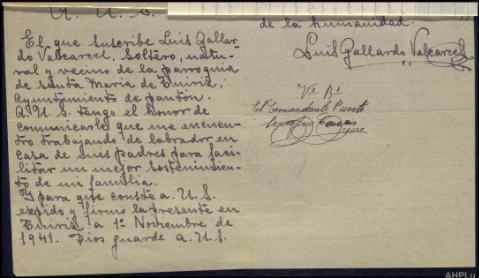 A. U. S.
El que suscribe Luis Gallar-
do Valcarcel, soltero, natu-
ral y vecino de la parroquia
de Santa Maria de Tuiriz,
Ayuntamiento de pantón.
A.U.S. tengo el honor de
comunicarle que me encuen-
tro trabajando de labrador en
casa de mis padres para faci-
litar un mejor sostenimien-
to de mi familia.
Y para que conste a. U.S.
expido y firmo la presente en
Tuiriz a 1º Noviembre de
1941. Dios guarde a. U.S.
de la humanidad.
Luis Gallardo Valcarcel
Vº Bº
El Comandante Puesto
AHPLu